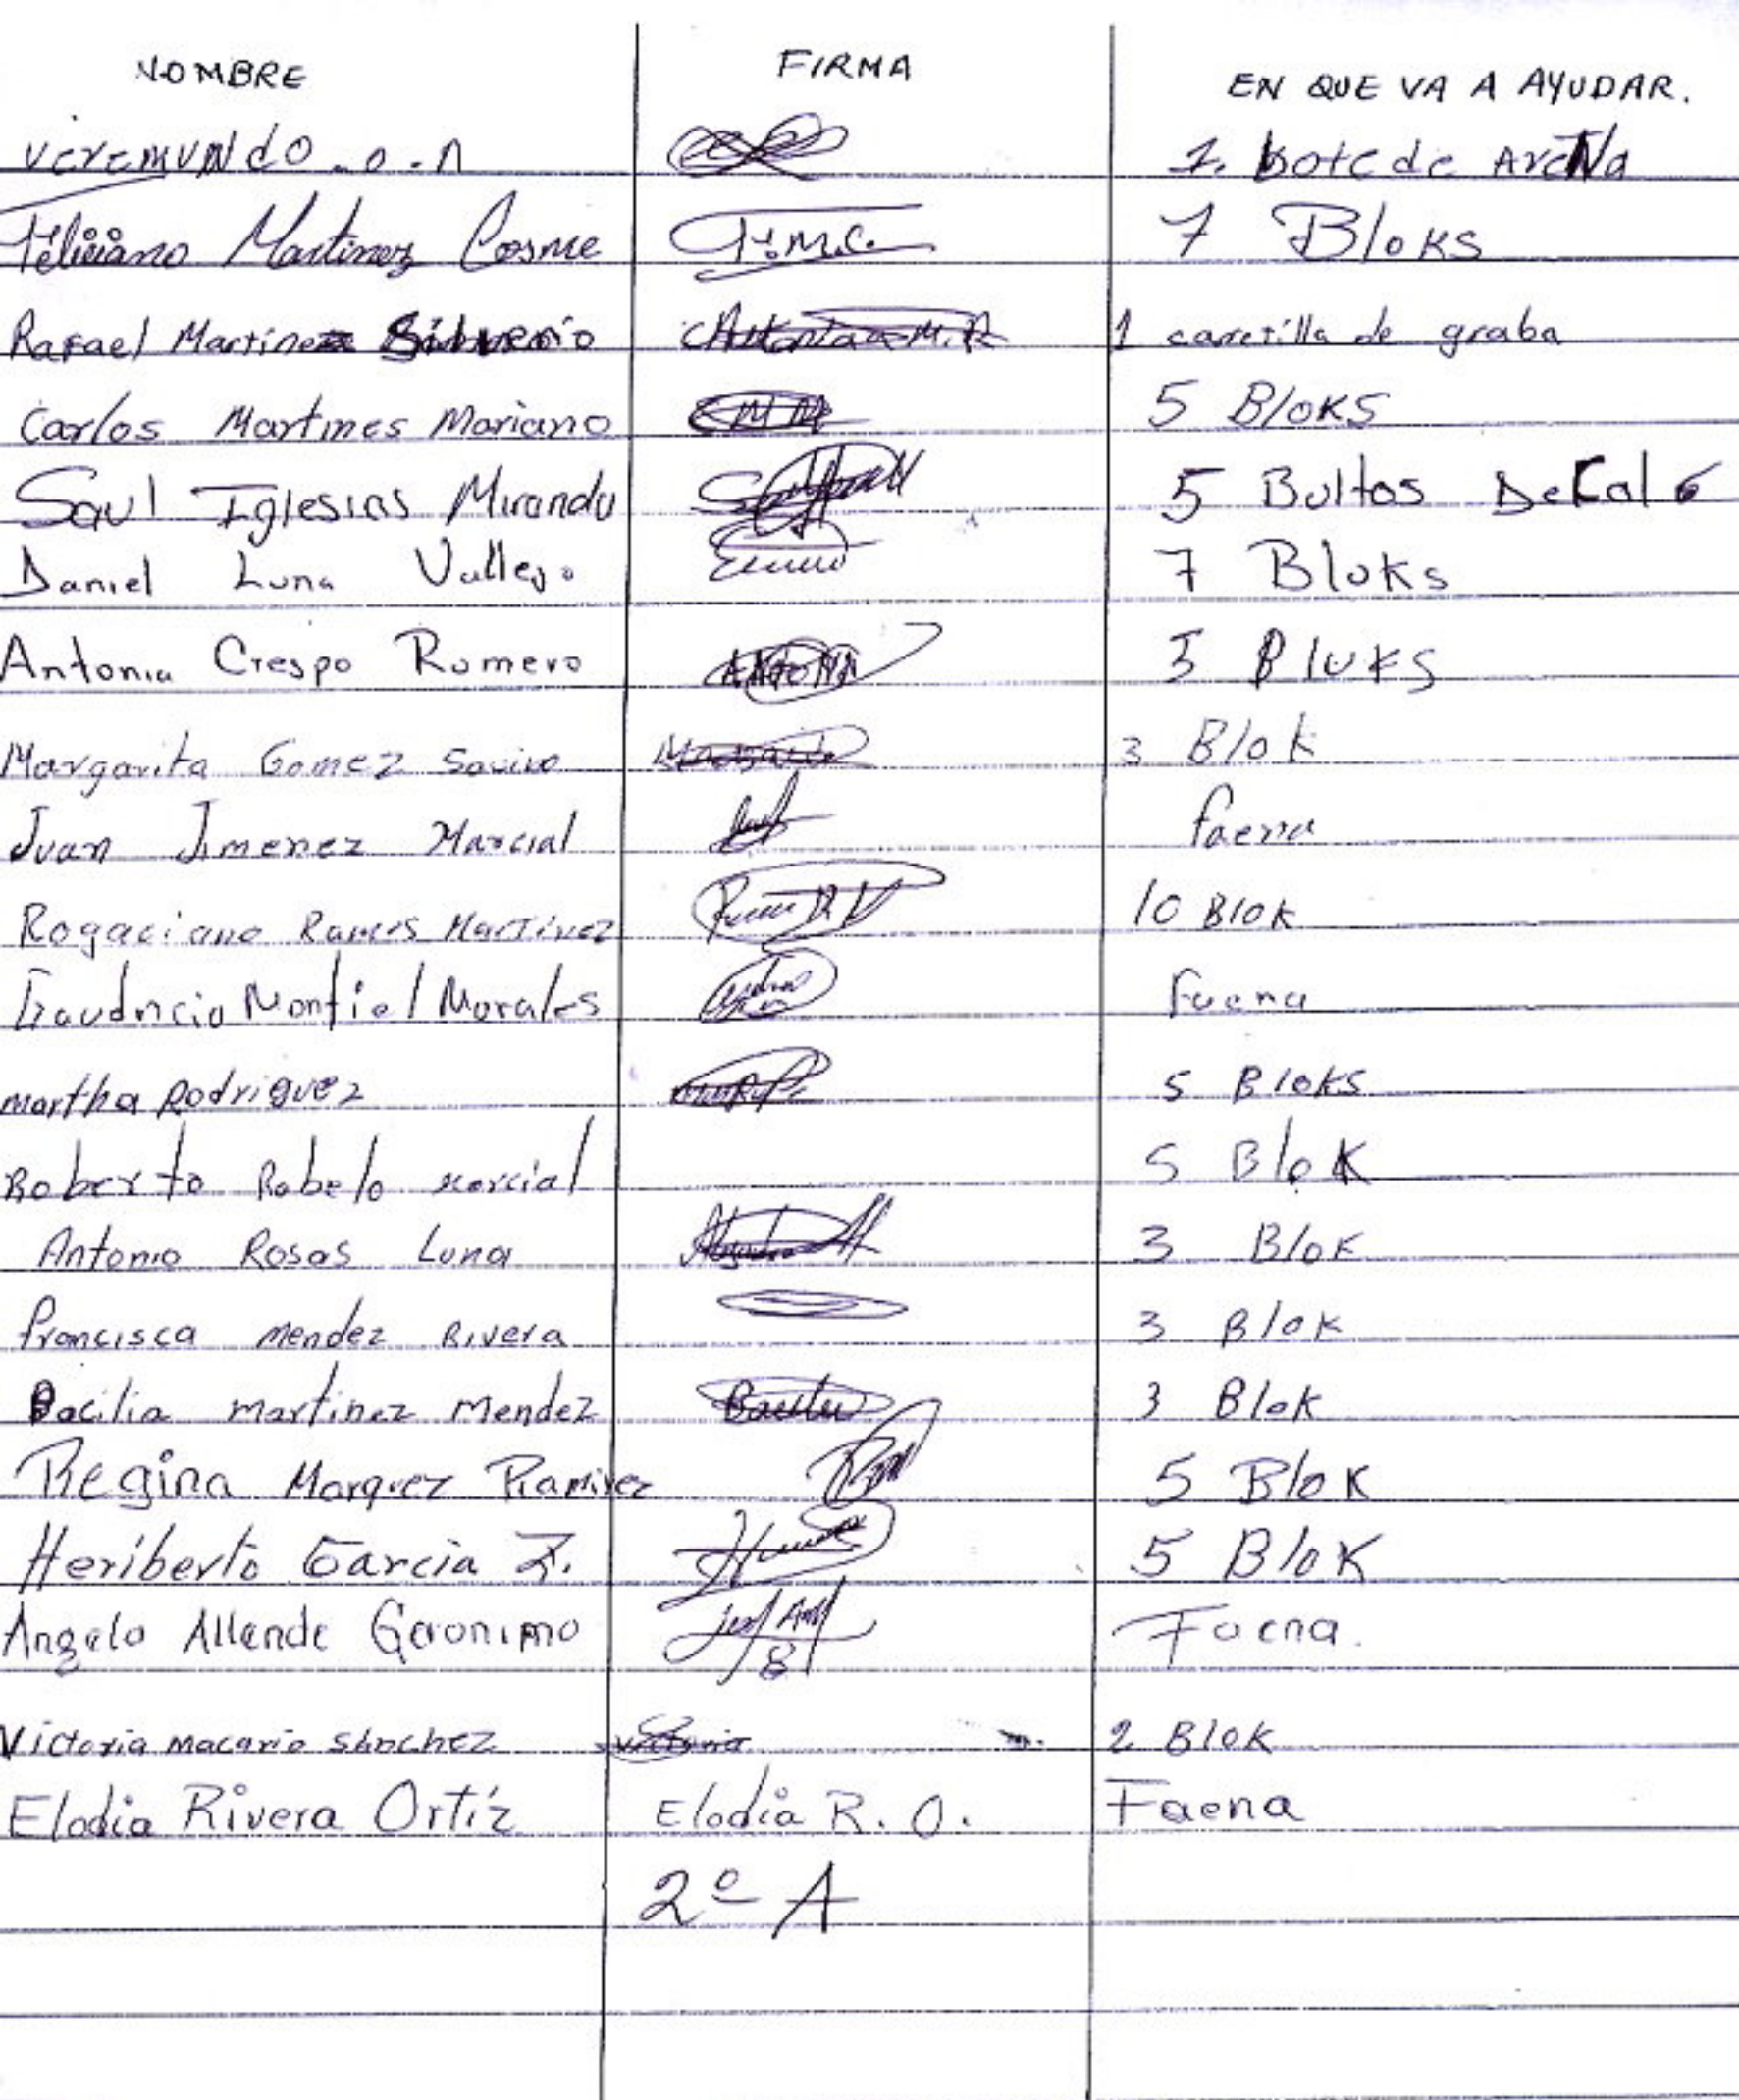 NOMBRE FIRMA EN QUE VA A AYUDAR.
veremundo - o - n 1. bote de Arena
Feliciano Martinez Cosme F.M.C. 7 Bloks
Rafael Martinez Silverio Antonia M.R 1 caretilla de graba
Carlos Martines Mariano CMM 5 Bloks
Saul Iglesias Miranda 5 Bultos De Cal
Daniel Luna Vallejo 7 Bloks
Antonia Crespo Romero ANTONIA 5 Bloks
Margarita Gomez Savino Margarita 3 Blok
Juan Jimenez Marcial faena
Rogaciano Ramos Martinez 10 Blok
Gaudncio Montiel Morales faena
martha Rodriguez 5 Bloks
Roberto Robelo Marcial 5 Blok
Antonio Rosas Luna 3 Blok
francisca mendez Rivera 3 Blok
Bacilia martinez mendez 3 Blok
Regina Marquez Ramirez 5 Blok
Heriberto Garcia Z. 5 Blok
Angela Allende Geronimo Faena.
Victoria macario sanchez victoria 2 Blok
Elodia Rivera Ortíz Elodia R. O. Faena
2º A